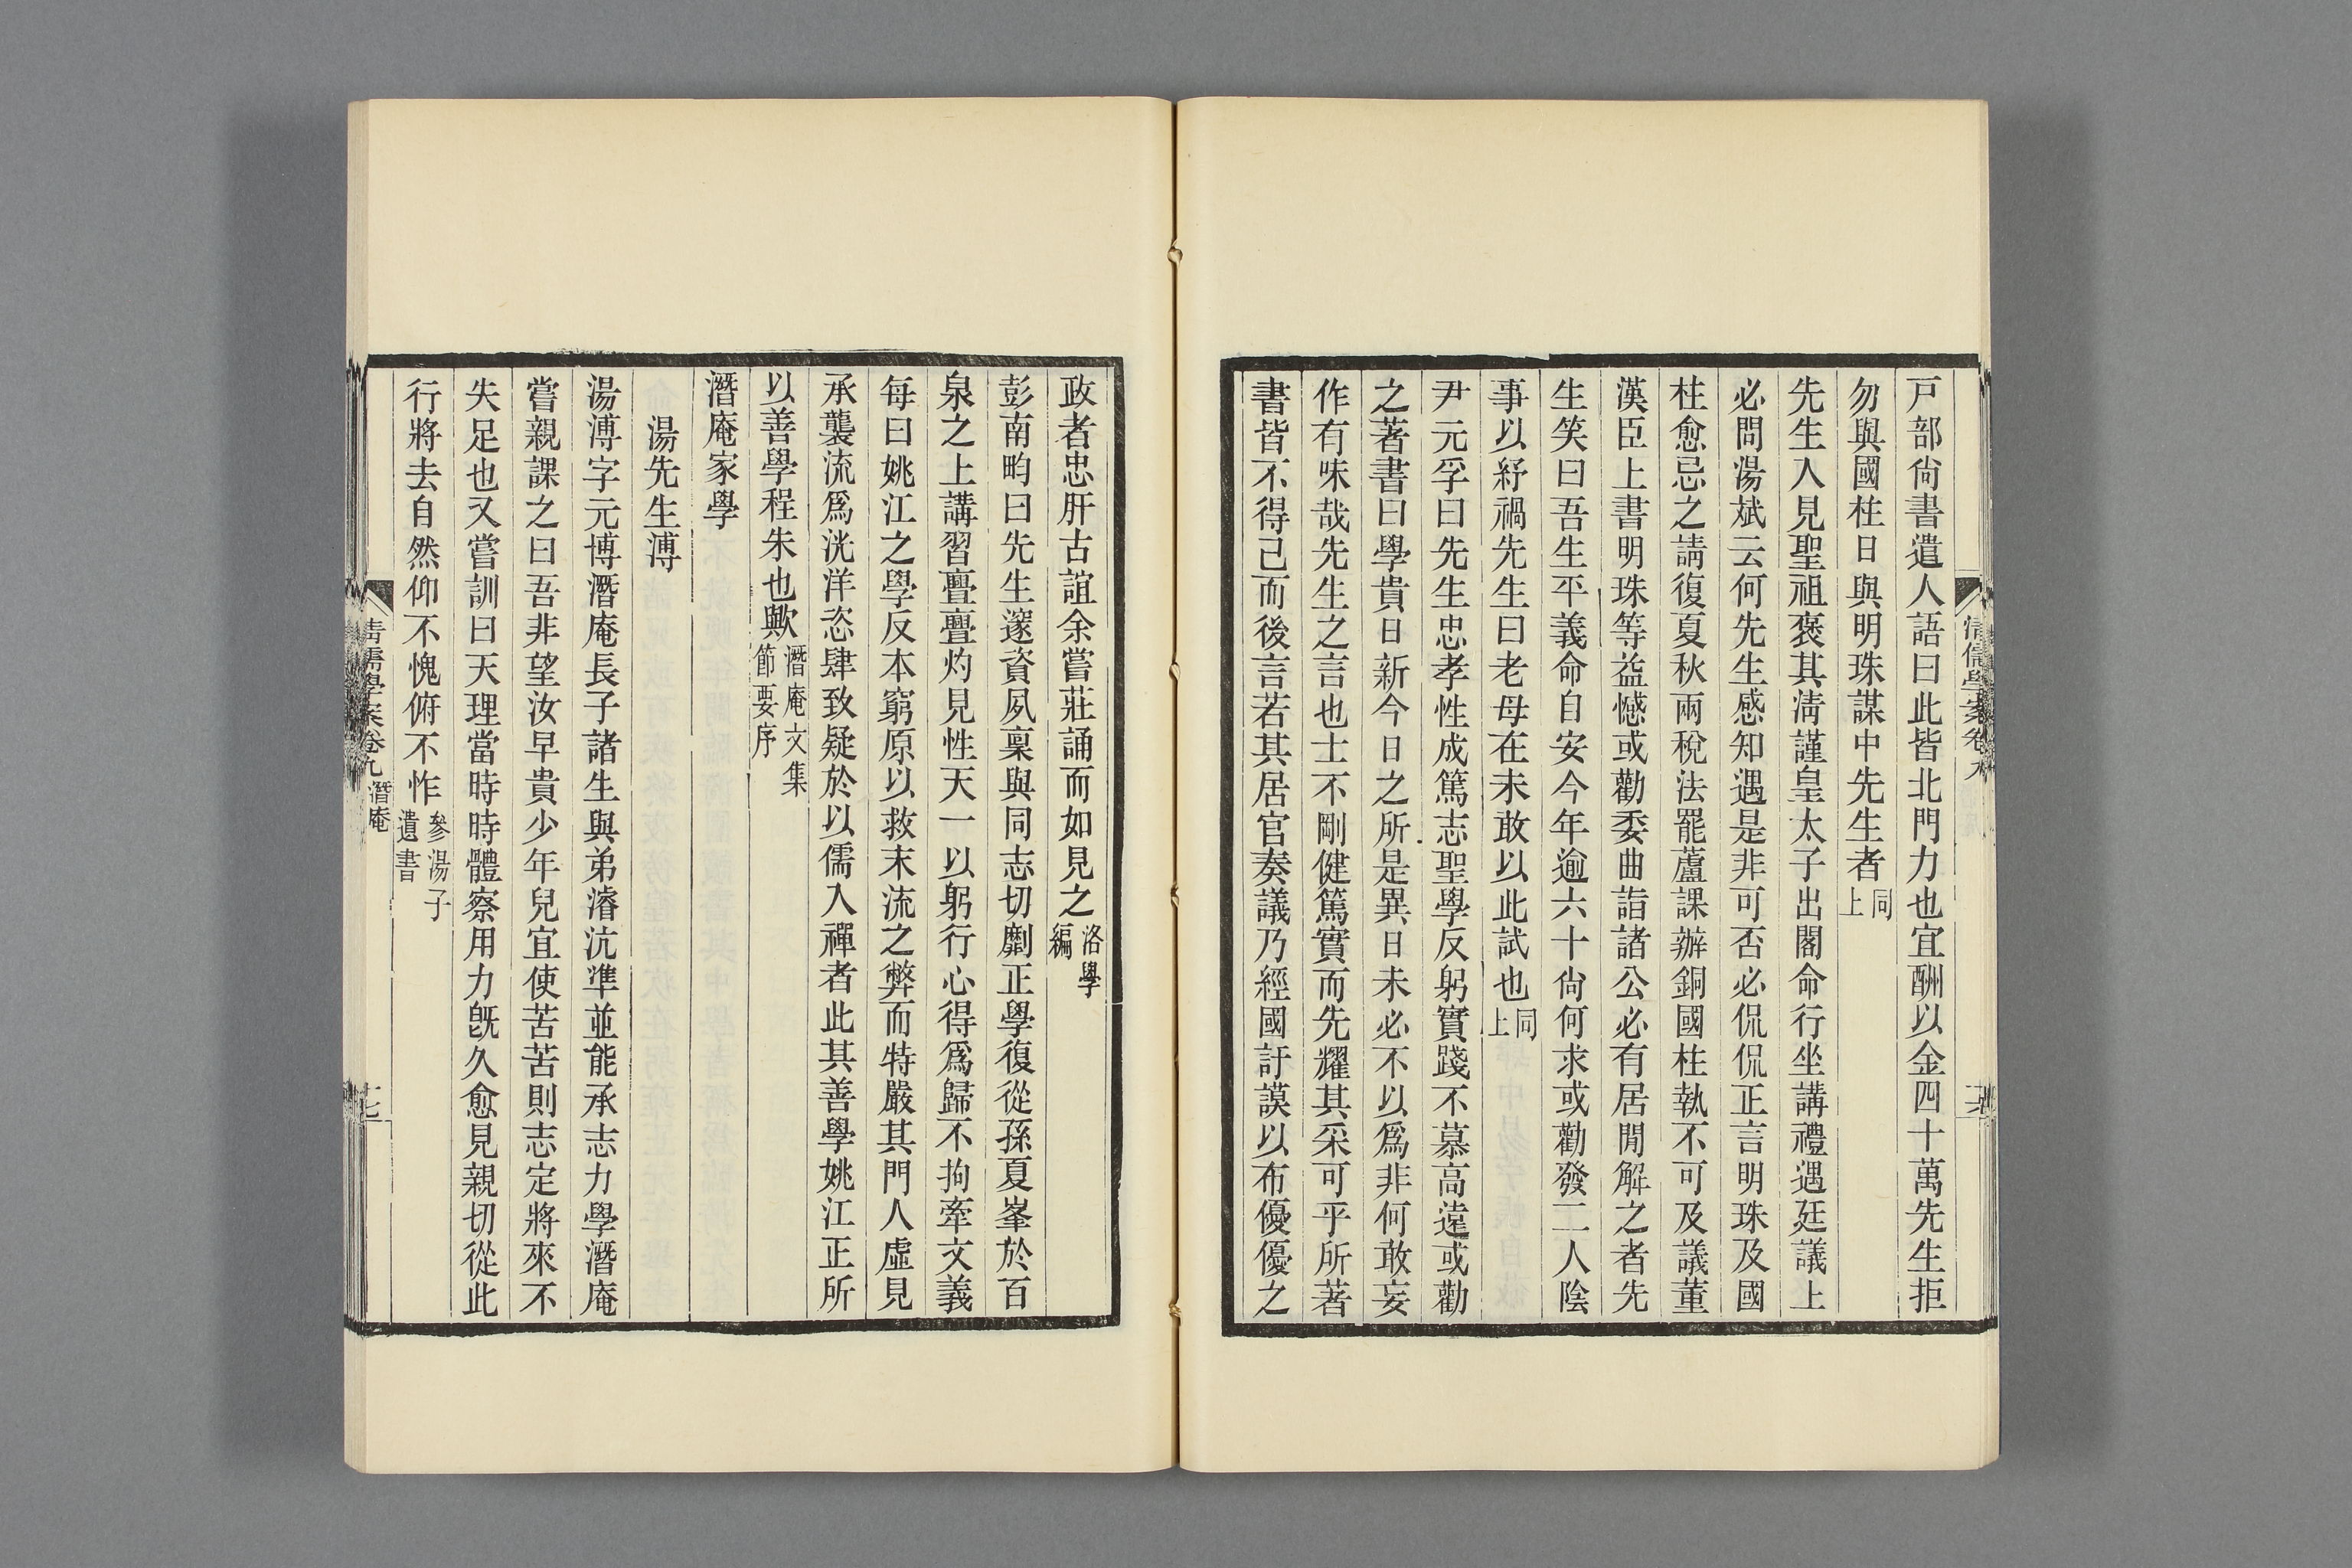 戸部尙書遣人語曰此皆北門力也宜酬以金四十萬先生拒
勿與國柱日與明珠謀中先生者同上
先生入見聖祖褒其淸謹皇太子出閣命行坐講禮遇廷議上
必問湯斌云何先生感知遇是非可否必侃侃正言明珠及國
柱愈忌之請復夏秋兩稅法罷蘆課辦銅國柱執不可及議董
漢臣上書明珠等益憾或勸委曲詣諸公必有居閒解之者先
生笑曰吾生平義命自安今年逾六十尙何求或勸發二人陰
事以紓禍先生曰老母在未敢以此試也同上
尹元孚曰先生忠孝性成篤志聖學反躬實踐不慕高遠或勸
之著書曰學貴日新今日之所是異日未必不以爲非何敢妄
作有味哉先生之言也士不剛健篤實而先耀其采可乎所著
書皆不得已而後言若其居官奏議乃經國訏謨以布優優之
政者忠肝古誼余嘗莊誦而如見之洛學編
彭南畇曰先生邃資夙稟與同志切劘正學復從孫夏峯於百
泉之上講習亹亹灼見性天一以躬行心得爲歸不拘牽文義
每曰姚江之學反本窮原以救末流之弊而特嚴其門人虛見
承襲流爲洸洋恣肆致疑於以儒入禪者此其善學姚江正所
以善學程朱也歟潛庵文集節要序
潛庵家學
湯先生溥
湯溥字元博潛庵長子諸生與弟濬沆準並能承志力學潛庵
嘗親課之曰吾非望汝早貴少年兒宜使苦苦則志定將來不
失足也又嘗訓曰天理當時時體察用力旣久愈見親切從此
行將去自然仰不愧俯不怍參湯子遺書
淸儒學案卷九 潛庵
十七